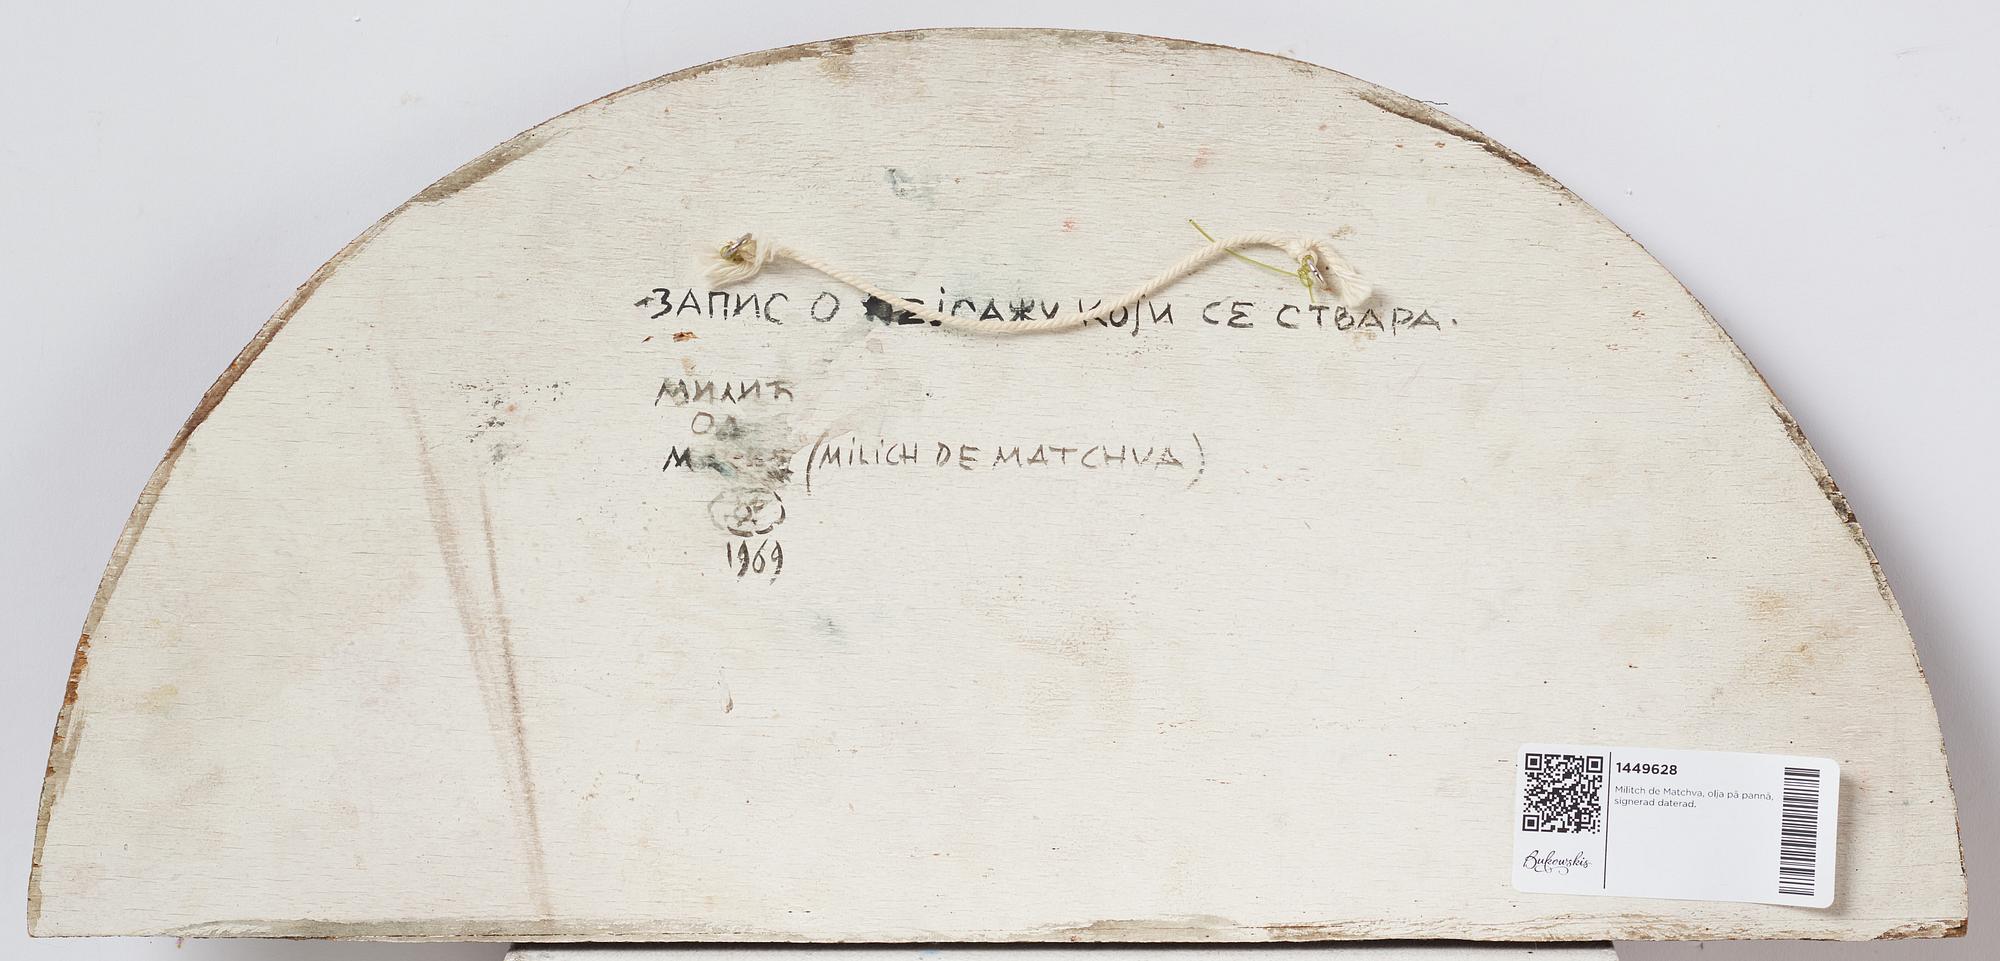 ЗАПИС О ПЕЈСАЖУ КОЈИ СЕ СТВАРА.
МИЛИЋ
ОД
(MILICH DE MATCHVA)
1969
1449628
Militch de Matchva, olja på pannå,
signerad daterad.
Bukowskis